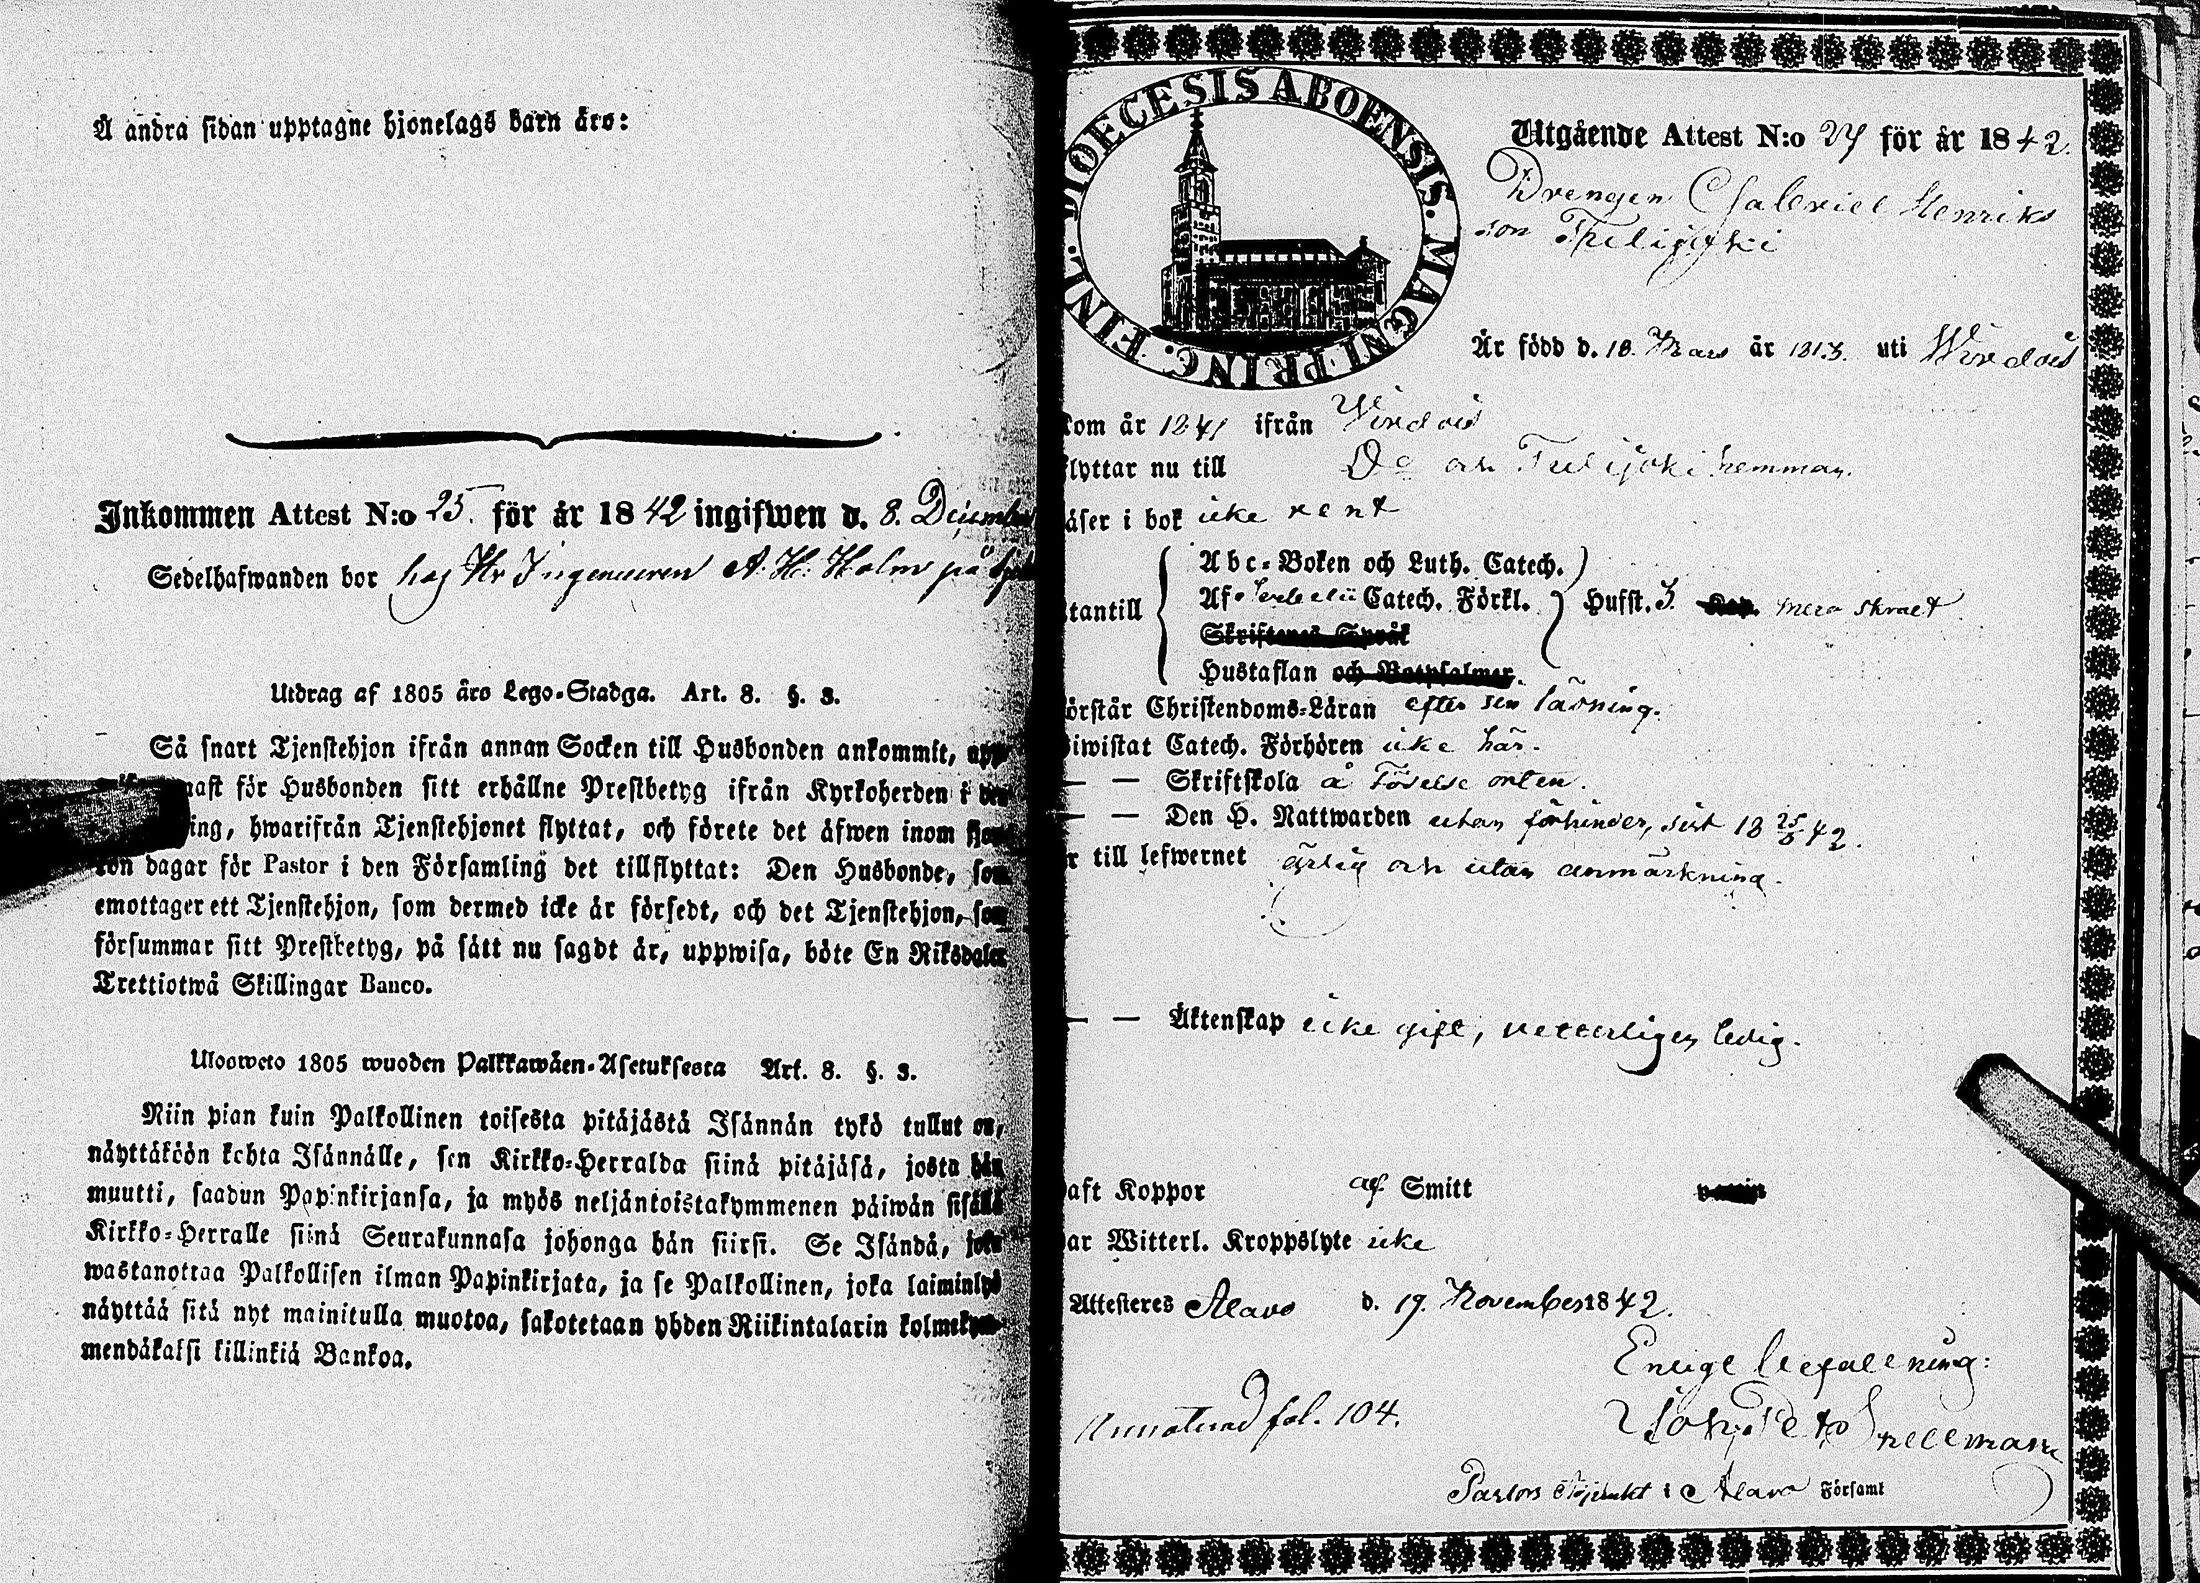 Å andra sidan upptagne hjonelags barn äro:
Inkommen Attest N:o 25. för år 1842 ingifwen d. 8. December
Sedelhafwanden bor hos Hr Ingenieuren A. H. Holm på
Utdrag af 1805 års Lego-Stadga. Art. 8. §. 3.
Så snart Tjenstehjon ifrån annan Socken till Husbonden ankommit, upp-
nast för Husbonden sitt erhållne Prestbetyg ifrån Kyrkoherden i den
ing, hwarifrån Tjenstehjonet flyttat, och förete det äfwen inom fjor-
ton dagar för Pastor i den Församling det tillflyttat: Den Husbonde, som
emottager ett Tjenstehjon, som dermed icke är försedt, och det Tjenstehjon, som
försummar sitt Prestbetyg, på sätt nu sagdt är, uppwisa, böte En Riksdaler
Trettiotwå Skillingar Banco.
Ulosweto 1805 wuoden Palkkawäen-Asetuksesta Art. 8. §. 3.
Niin pian kuin Palkollinen toisesta pitäjästä Isännän tykö tullut on,
näyttäköön kohta Isännälle, sen Kirkko-Herralda siinä pitäjäsä, josta hän
muutti, saadun Papinkirjansa, ja myös neljäntoistakymmenen päiwän sisällä
Kirkko-Herralle siinä Seurakunnasa johonga hän siirsi. Se Isändä, joka
wastanottaa Palkollisen ilman Papinkirjata, ja se Palkollinen, joka laiminlyö
näyttää sitä nyt mainitulla muotoa, sakotetaan yhden Riikintalarin kolmekym-
mendäkaksi killinkiä Bankoa.
DIOECESIS ABOENSIS. MAGNI PRINC. FINL.
Utgående Attest N:o 27 för år 1842.
Drengen Gabriel Henriks
son
Är född d. 18. Mars år 1813. uti Wirdois
kom år 1841 ifrån Virdois
flyttar nu till Do och hemman.
läser i bok icke rent
Abc-Boken och Luth. Catech.
utantill Af Catech. Förkl. Husst. 3. Kap. mera skralt
Skriftenes Språk
Hustaflan och Botpsalmer.
Förstår Christendoms-Läran efter sin läsning.
Biwistat Catech. Förhören icke här.
— — Skriftskola å Födelse orten.
— — Den H. Nattwarden utan förhinder, sist 18 25/8 42.
är till lefwernet ärlig och utan anmärkning.
— — Äktenskap icke gift, vetterligen ledig.
haft Koppor af Smitt
har Witterl. Kroppslyte icke
Attesteres Alavo d. 19. November 1842.
Enligt befallning:
fol. 104.
Snellman
Pastors Adjunkt i Alavo Församl